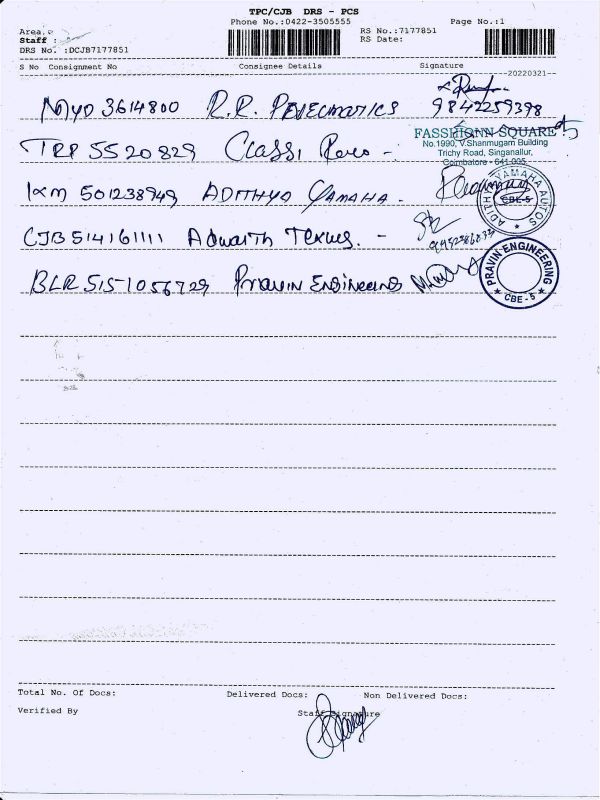 TPC/CJB DRS - PCS
Phone No.:0422-3505555 Page No.:1
Area.
Staff :
DRS No. :DCJB7177851
RS No.:7177851
RS Date:
S No Consignment No Consignee Details Signature
--20220321--
3614800 R.R. 9842259398
FASSHIONN SQUARE
No.1990, V.Shanmugam Building
Trichy Road, Singanallur,
Coimbatore - 641 005
TRP 5520829 Classi -
IXM 501238949 ADITHYA YAMAHA -
ADITHYA YAMAHA AUTOS
CBE-5
CJB 514161111 Adwaith -
BLR 5151056729 Pravin Engineering
PRAVIN ENGINEERING
CBE - 5
Total No. Of Docs: Delivered Docs: Non Delivered Docs:
Verified By Staff Signature